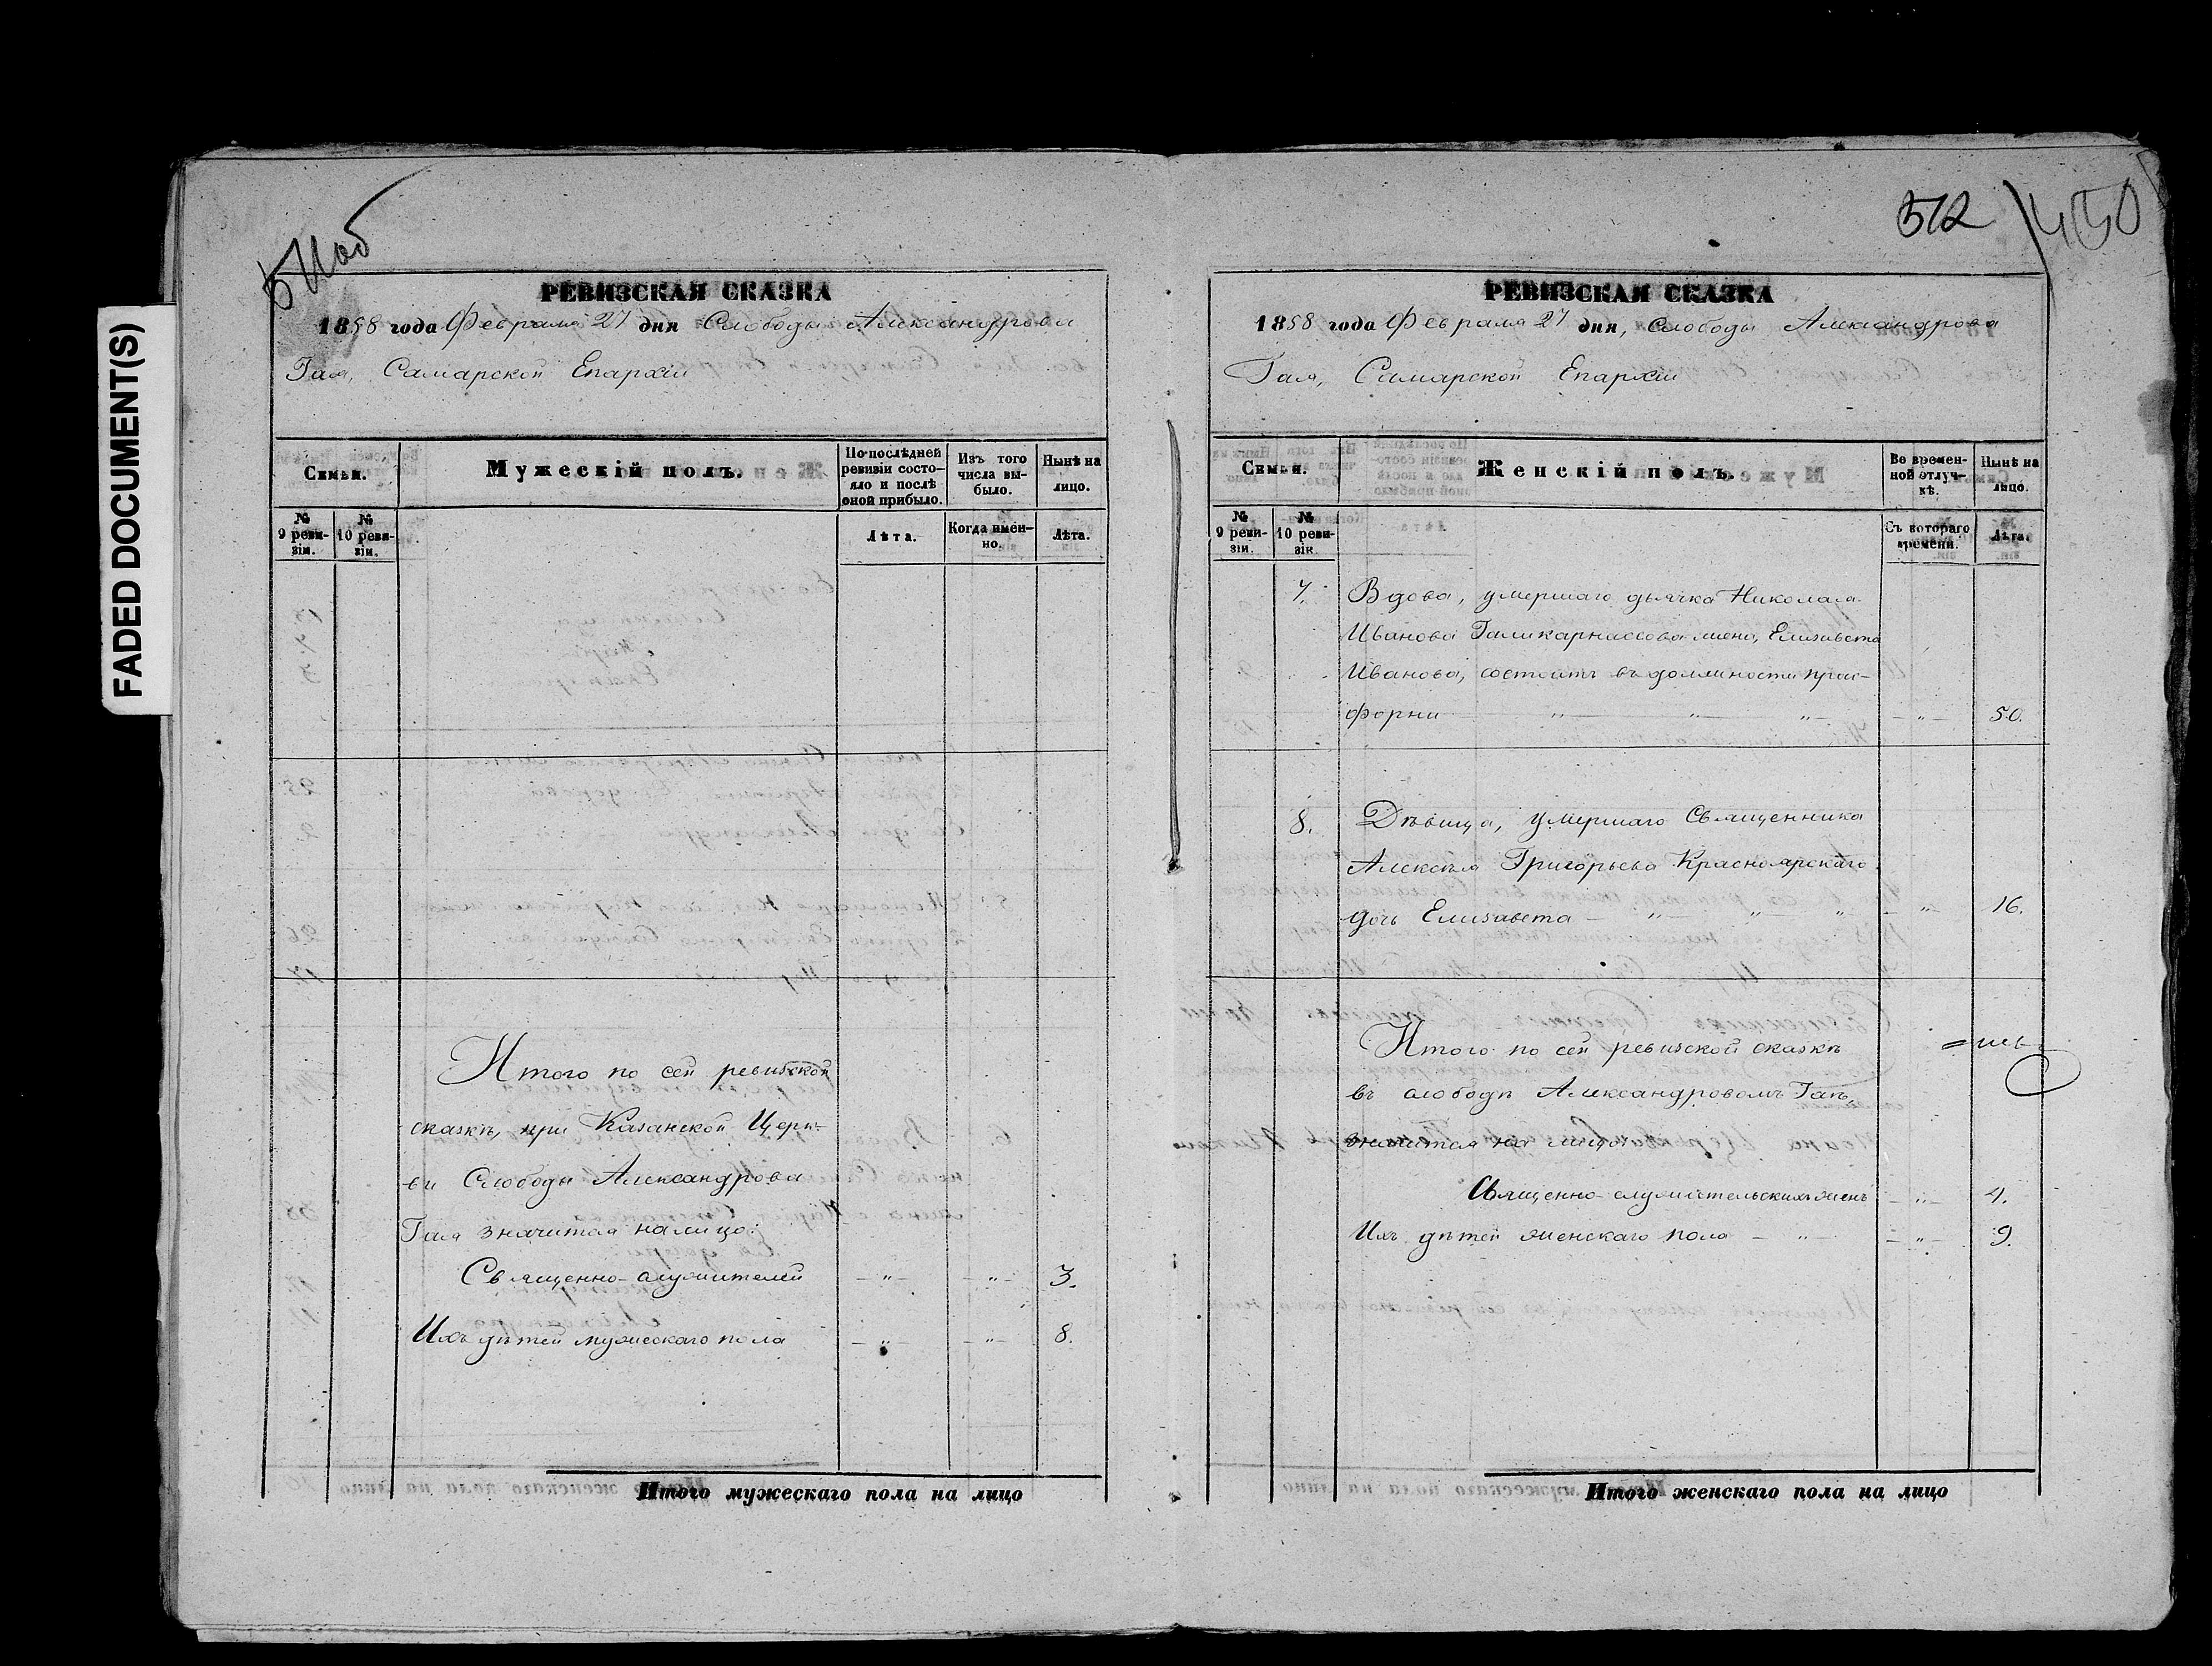 FADED DOCUMENT(S)
511об
РЕВИЗСКАЯ СКАЗКА
1858 года Февраля 27 дня Слободы Александрова
Гая, Самарской Епархіи
Семьи.
Мужескій полъ.
По послѣдней
ревизіи состо-
яло и послѣ
оной прибыло.
Изъ того
числа вы-
было.
Нынѣ на
лицо.
№
9 реви-
зіи.
№
10 реви-
зіи.
Лѣта.
Когда имен-
но.
Лѣта.
Итого по сей ревизской
сказкѣ, при Казанской Церк-
ви Слободы Александрова
Гая значится на лицо:
Священно-служителей -"- -"- 3.
Ихъ дѣтей мужескаго пола -"- -"- 8.
Итого мужескаго пола на лицо
512
450
РЕВИЗСКАЯ СКАЗКА
1858 года Февраля 27 дня, Слободы Александрова
Гая, Самарской Епархіи
Семьи.
Женскій полъ.
Во времен-
ной отлуч-
кѣ.
Нынѣ на
лицо.
№
9 реви-
зіи.
№
10 реви-
зіи.
Съ котораго
времени.
Лѣта.
7. Вдова, умершаго дьячка Николая
Иванова Галикарнасова жена, Елизавета
Иванова, состоитъ въ должности прос-
форни -"- -"- -"- -"- 50.
8. Дѣвица, умершаго Священника
Алексѣя Григорьева Красноярскаго
дочь Елизавета - "- " " - "- 16.
Итого по сей ревизской сказкѣ
въ слободѣ Александровомъ Гаѣ,
значится на лицо:
Священно-служительскихъ женъ -"- 4.
Ихъ дѣтей женскаго пола - "- -"- 9.
Итого женскаго пола на лицо